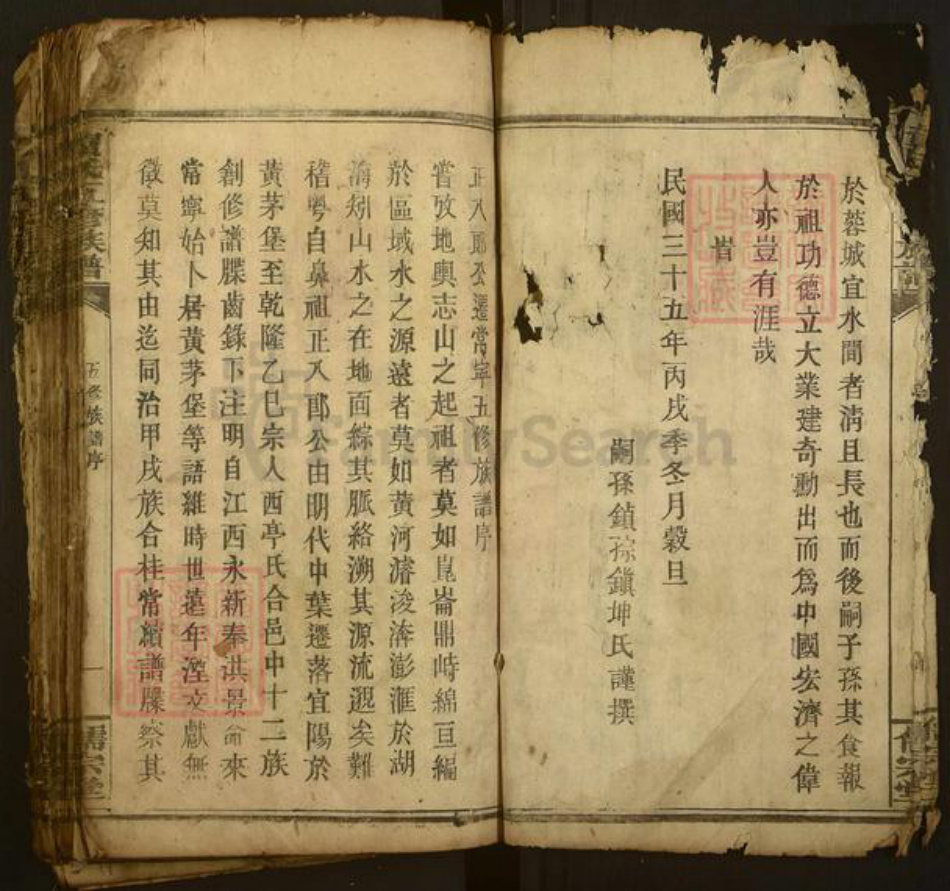 於蓉城宜水間者淸且長也而後嗣子孫其食報
於祖功德立大業建奇勳出而爲中國宏濟之偉
人亦豈有涯哉
旹
民國三十五年丙戌季冬月穀旦
嗣孫鎮琮鎭坤氏謹撰
正八郎公遷常寧五修族譜序
嘗攷地輿志山之起祖者莫如崑崙鼎峙綿亘編
於區域水之源遠者莫如黃河濬浚湃彭滙於湖
海矧山水之在地面綜其脈絡溯其源流遐矣難
稽粤自鼻祖正八郎公由明代中葉遷落宜陽於
黃茅堡至乾隆乙巳宗人西亭氏合邑中十二族
創修譜牒齒錄下注明自江西永新奉洪景命來
常寧始卜居黃茅堡等語維時世遠年湮文獻無
徵莫知其由迄同治甲戌族合桂常續譜牒察其
五修族譜序
一
儒宗堂
FamilySearch